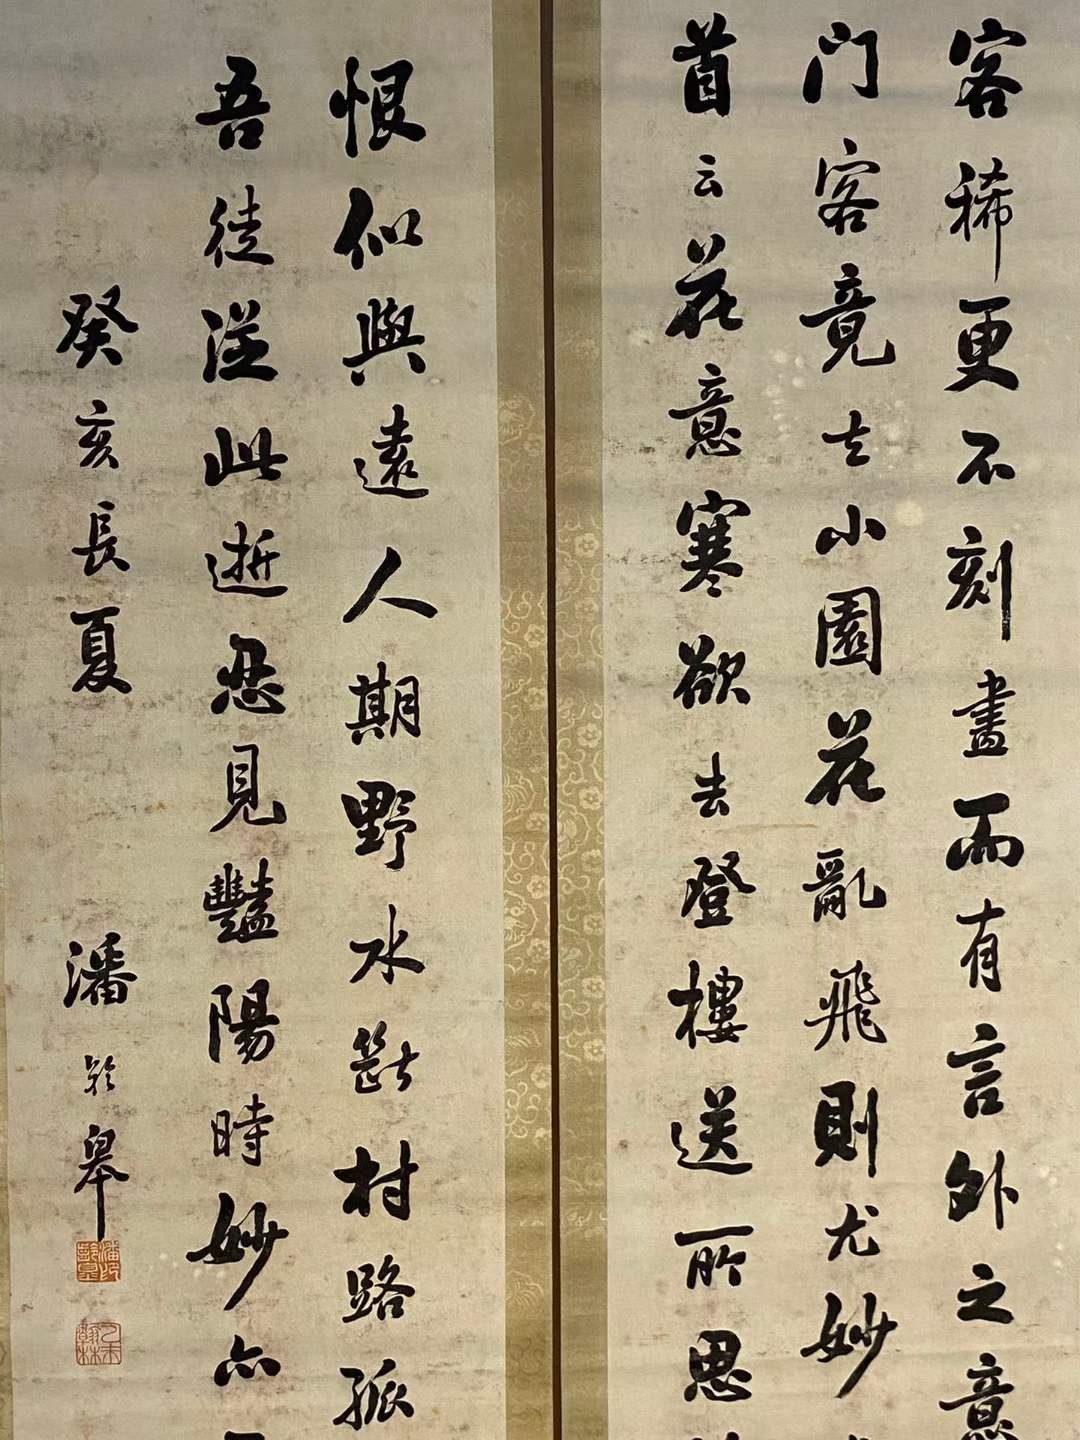 客稀更不刻畫而有言外之意
门客竟去小園花亂飛則尤妙
首云花意寒欲去登樓送所思
恨似與遠人期野水斷村路孤
吾徒從此逝忍見豔陽時妙亦
癸亥長夏
潘齡皋
潘印齡皋